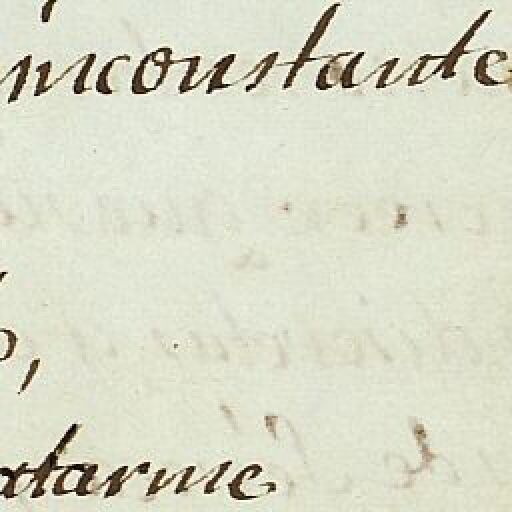 inconstante
o,
atarme